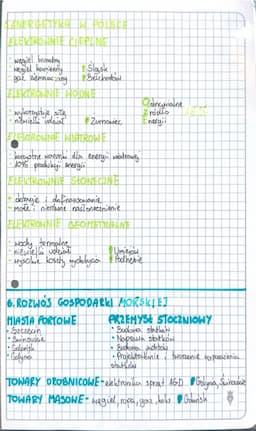 ENERGETYKA W POLSCE
ELEKTROWNIE CIEPLNE
• węgiel brunatny
• węgiel kamienny Śląsk
• gaz ziemny Bełchatów
ELEKTROWNIE WODNE
Odnawialne
• wykorzystuje siłę Źródło
• niewielki udział Żarnowiec Energii
ELEKTROWNIE WIATROWE
• korzystne warunki dla energii wiatrowej
10% produkcji energii
ELEKTROWNIE SŁONECZNE
• dotacje i dofinansowanie
- małe i nierówne nasłonecznienie
ELEKTROWNIE GEOTERMALNE
• wody termalne
• niewielki udział Uniejów
• wysokie koszty Podhale
6. ROZWÓJ GOSPODARKI MORSKIEJ
MIASTA PORTOWE PRZEMYSŁ STOCZNIOWY
• Szczecin • Budowa statków
• Świnoujście • Naprawa statków
• Gdańsk • Budowa jachtów
• Gdynia • Projektowanie i tworzenie wyposażenia
statków
TOWARY DROBNICOWE - elektronika, sprzęt AGD Gdynia, Świnoujście
TOWARY MASOWE - węgiel, ropa, gaz, Gdańsk